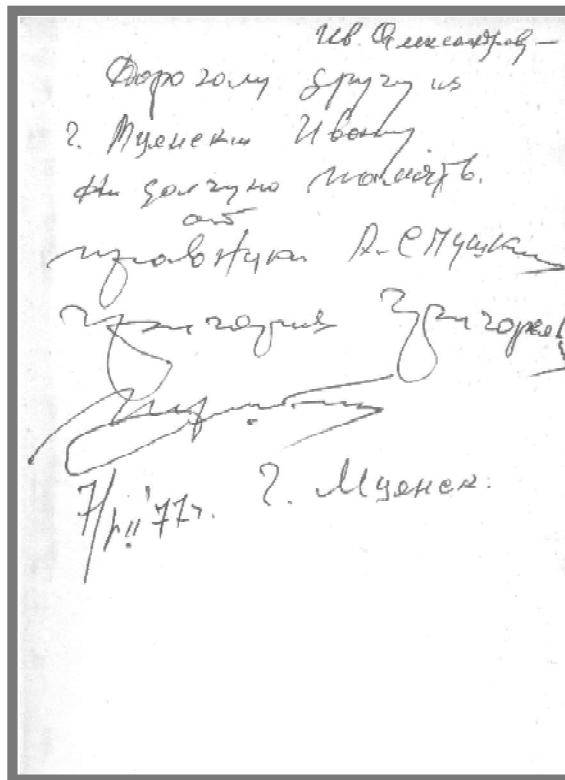 Ив. Александров —
Дорогому другу из
г. Мценска Ивану
на долгую память.
от
правнука А.С Пушкин
Григория Григорьев
7/VII '77г. г. Мценск.